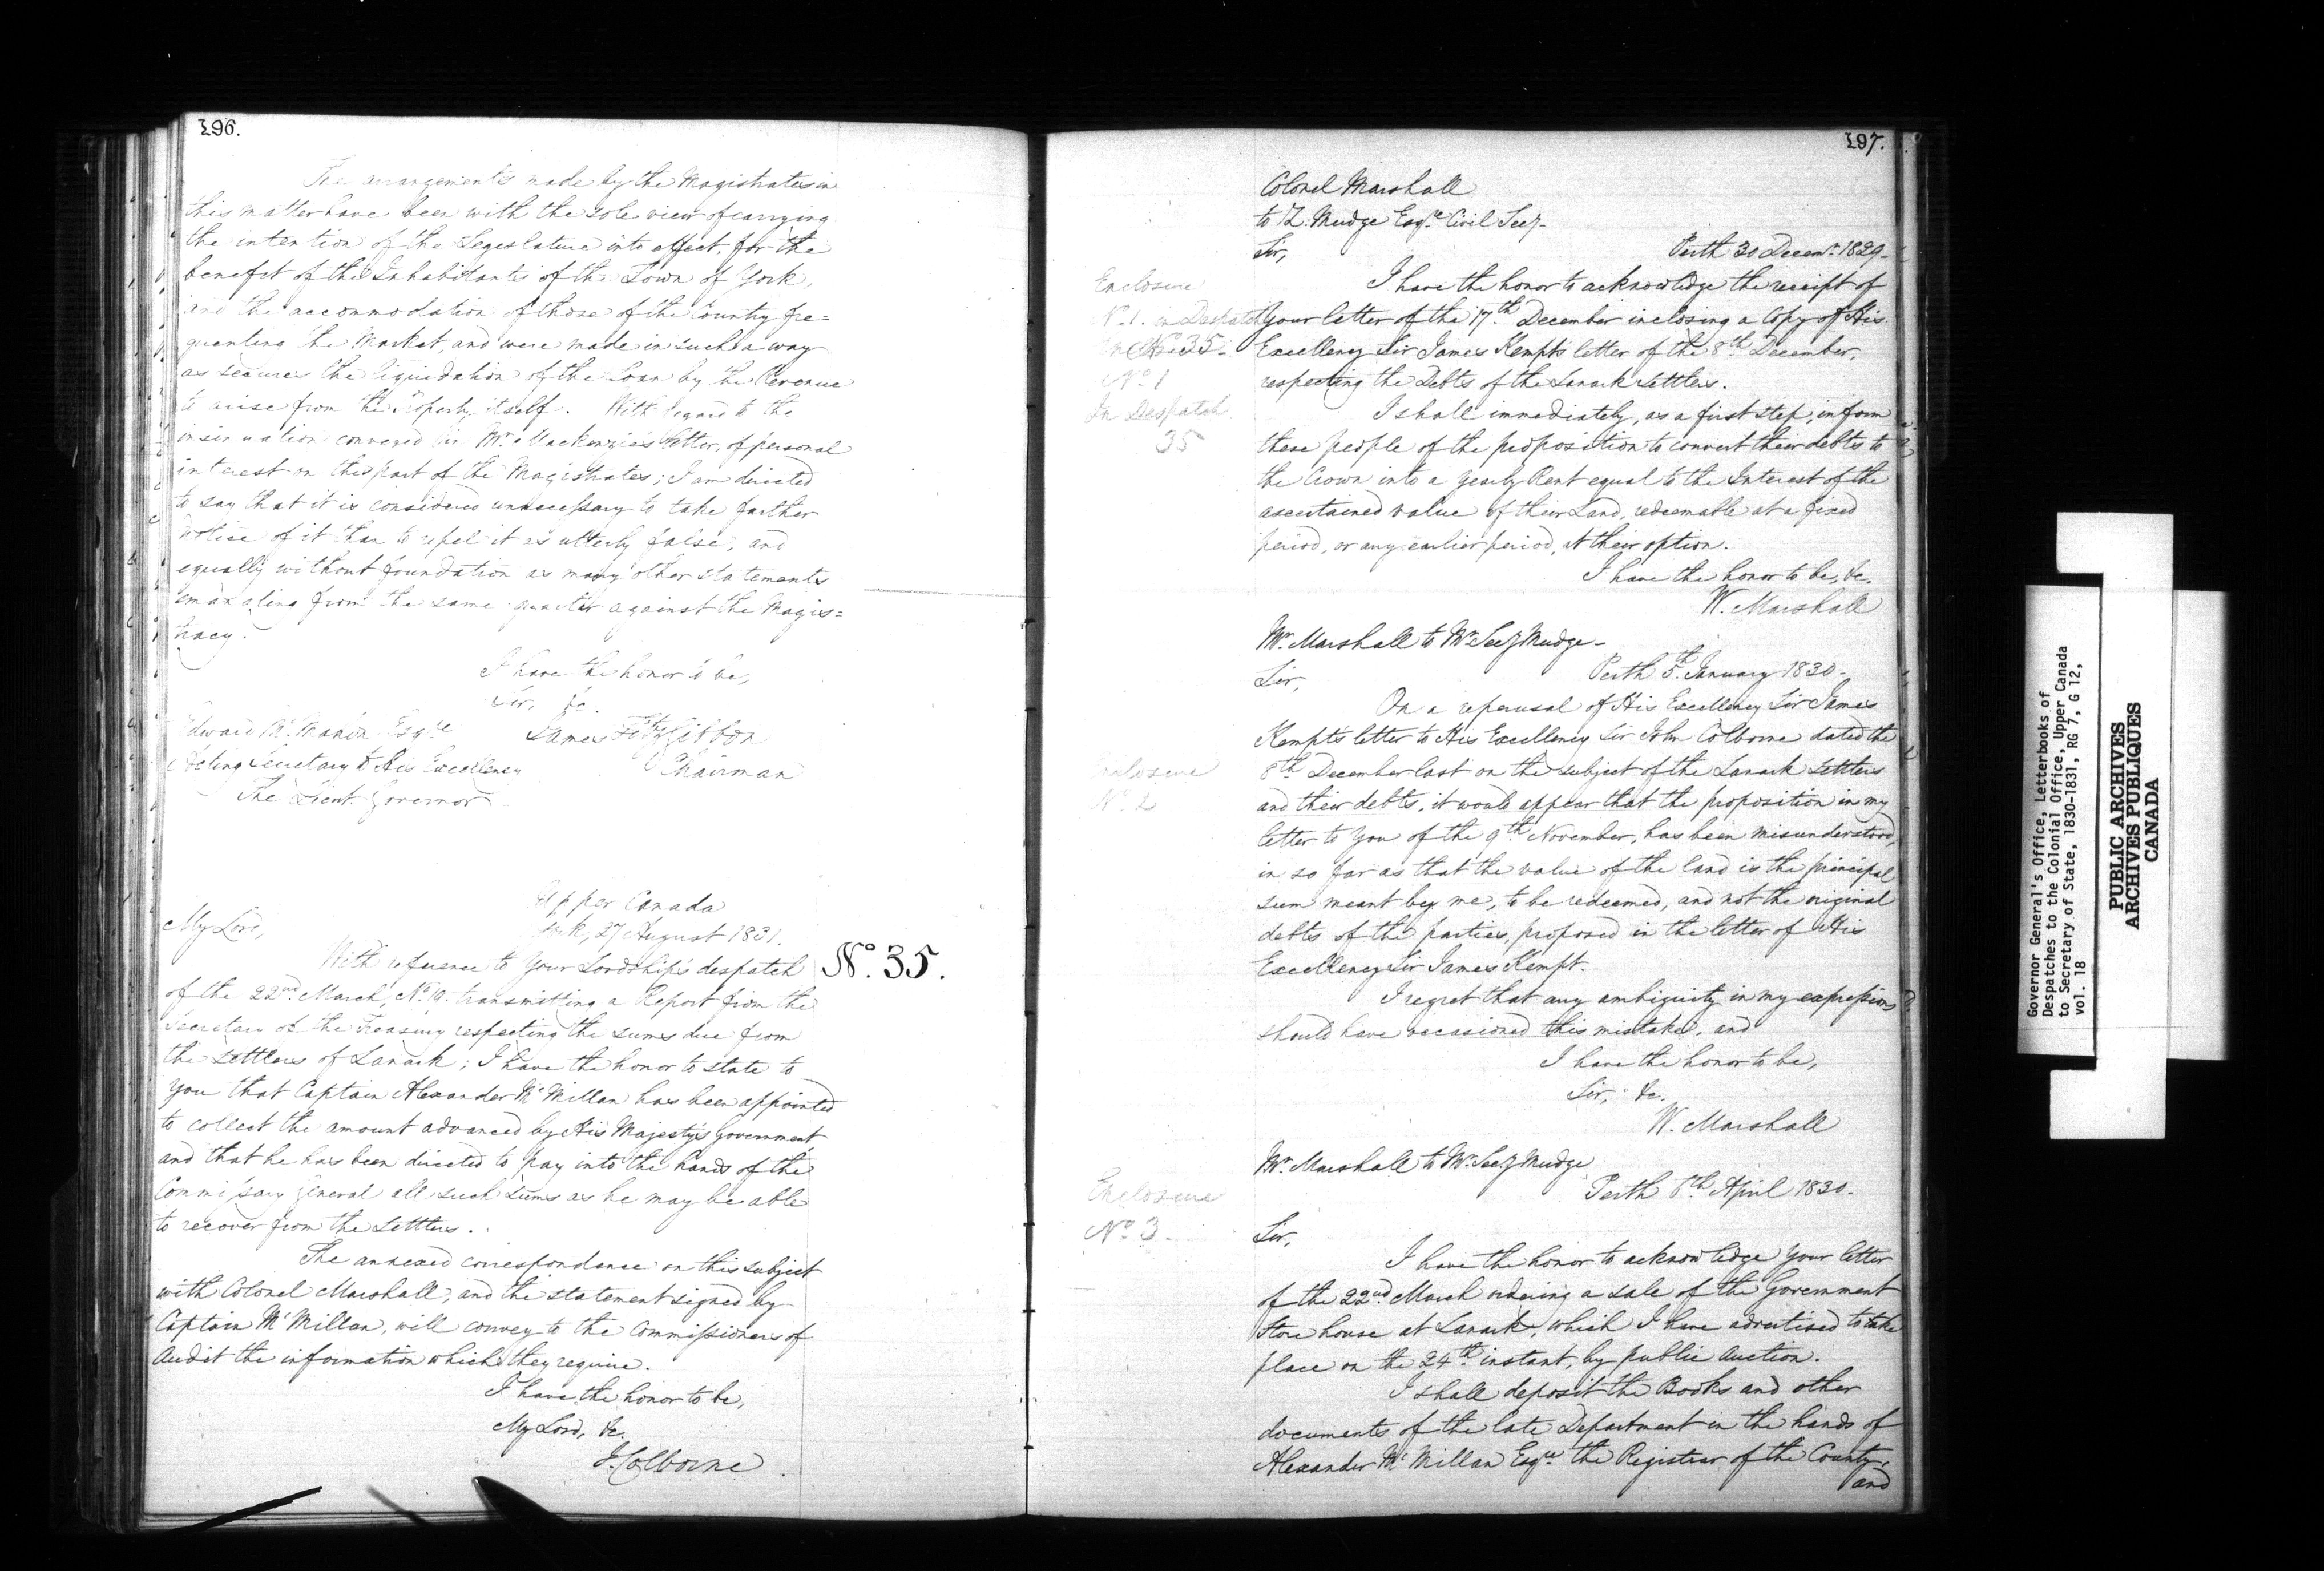 196.
The arrangements made by the Magistrates in
this matter have been with the sole view of carrying
the intention of the Legislature into effect, for the
benefit of the Inhabitants of the Town of York,
and the accommodation of those of the Country fre=
quenting the Market, and were made in such a way
as secures the liquidation of the Loan by the Revenue
to arise from the Property itself. With regard to the
insinuation conveyed in Mr. Mackenzie's letter, of personal
interest on the part of the Magistrates; I am directed
to say that it is considered unnecessary to take further
notice of it than to repel it as utterly false, and
equally without foundation as many other statements
emanating from the same quarter against the Magis=
tracy.
I have the honor to be,
Sir, &c.
Edward McMahon Esqre
James FitzGibbon
Acting Secretary to His Excellency
Chairman
The Lieut. Governor
Upper Canada
York, 27 August 1831.
My Lord,
No. 35.
With reference to Your Lordship's despatch
of the 22nd. March, No. 10. transmitting a Report from the
Secretary of the Treasury respecting the sums due from
the Settlers of Lanark; I have the honor to state to
you that Captain Alexander McMillan has been appointed
to collect the amount advanced by His Majesty's Government
and that he has been directed to pay into the hands of the
Commissary General all such sums as he may be able
to recover from the Settlers.
The annexed correspondence on this subject
with Colonel Marshall, and the statement signed by
Captain McMillan, will convey to the Commissioners of
Audit the information which they require.
I have the honor to be,
My Lord, &c.
J. Colborne
197.
Colonel Marshall
to Z. Mudge Esqre Civil Secy.
Sir,
Perth 30 Decemr. 1829.
Enclosure
No. 1. in Despatch
No 35.
No 1
In Despatch
35
I have the honor to acknowledge the receipt of
Your letter of the 17th. December inclosing a Copy of His
Excellency Sir James Kempt's letter of the 8th December,
respecting the Debts of the Lanark Settlers.
I shall immediately, as a first step, inform
these people of the proposition to convert their debts to
the Crown into a yearly Rent equal to the Interest of the
ascertained value of their Land, redeemable at a fixed
period, or any earlier period, at their option.
I have the honor to be, &c.
W. Marshall
Mr. Marshall to Mr. Secy Mudge.
Perth 5th. January 1830.
Sir,
On a reperusal of His Excellency Sir James
Kempt's letter to His Excellency Sir John Colborne dated the
Enclosure
No. 2
8th December last on the subject of the Lanark Settlers
and their debts, it would appear that the proposition in my
letter to You of the 9th November, has been misunderstood,
in so far as that the value of the land is the principal
sum meant by me, to be redeemed, and not the original
debts of the parties, proposed in the letter of His
Excellency Sir James Kempt.
I regret that any ambiguity in my expressions
should have occasioned this mistake, and
I have the honor to be,
Sir, &c.
W. Marshall
Mr. Marshall to Mr. Secy Mudge
Perth 8th April 1830.
Enclosure
No 3.
Sir,
I have the honor to acknowledge Your letter
of the 22nd. March ordering a sale of the Government
Store house at Lanark, which I have advertised to take
place on the 24th. instant, by public Auction.
I shall deposit the Books and other
documents of the late Department in the hands of
Alexander McMillan Esqre the Registrar of the County,
and
Governor General's Office, Letterbooks of
Despatches to the Colonial Office, Upper Canada
to Secretary of State, 1830-1831, RG 7, G 12,
vol. 18
PUBLIC ARCHIVES
ARCHIVES PUBLIQUES
CANADA